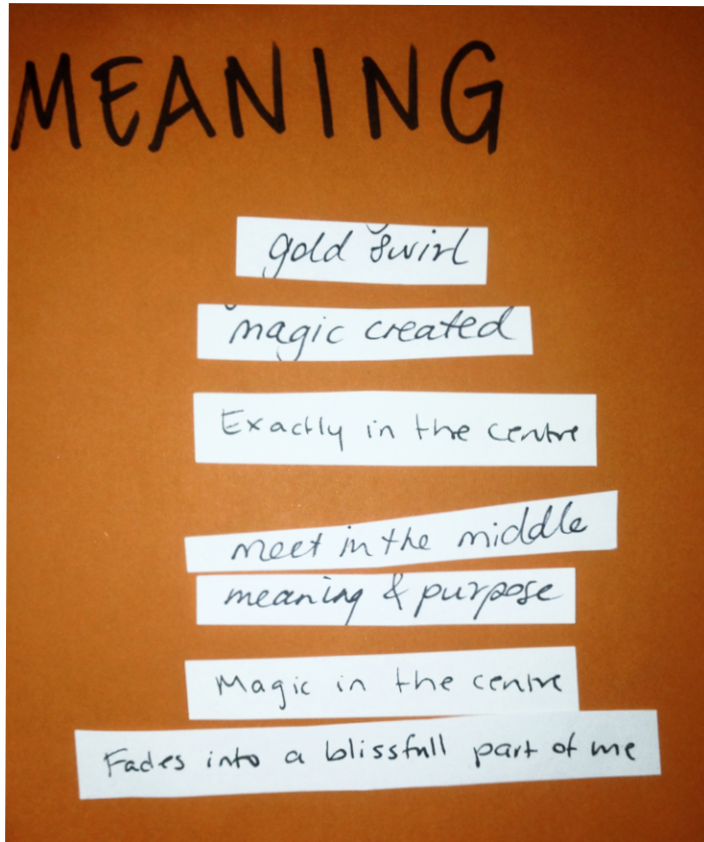 MEANING
gold swirl
magic created
Exactly in the centre
meet in the middle
meaning & purpose
Magic in the centre
Fades into a blissfull part of me